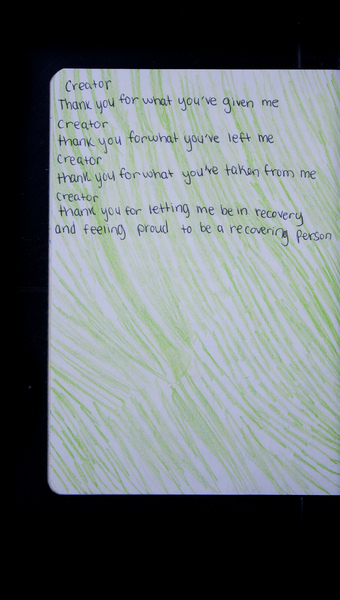 Creator
Thank you for what you've given me
Creator
thank you for what you've left me
Creator
thank you for what you've taken from me
creator
thank you for letting me be in recovery
and feeling proud to be a recovering person